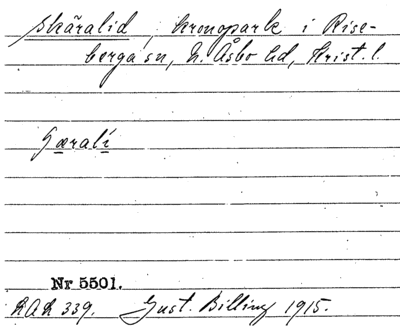 Skäralid, kronopark i Rise-
berga sn, N. Åsbo hd, Krist. l.
Særalí
Nr 5501.
RAÄ 339. Gust. Billing 1915.